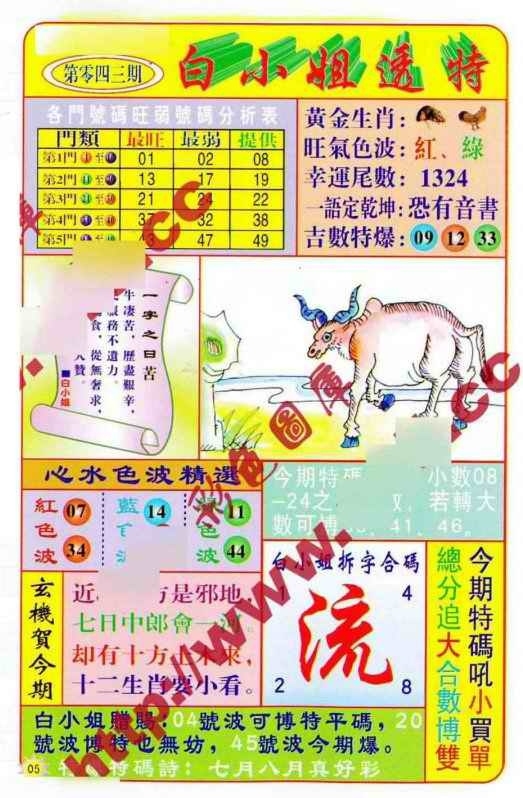 第零四三期
白小姐透特
各門號碼旺弱號碼分析表
門類 最旺 最弱 提供
第1門 至 01 02 08
第2門 至 13 17 19
第3門 至 21 24 22
第4門 至 37 32 38
第5門 至 43 47 49
黃金生肖：
旺氣色波：紅、綠
幸運尾數：1324
一語定乾坤：恐有音書
吉數特爆：09 12 33
一字之曰苦
牛凄苦，歷盡艱辛，
服務不遺力。
食，從無奢求，
人贊。
■白小姐
心水色波精選
紅色波 07 34
藍 14
綠色波 11 44
今期特碼 小數08
-24之 若轉大
數可博 41、46。
玄機賀今期
近 方是邪地，
七日中郎會一河。
却有十方 未來，
十二生肖要小看。
白小姐拆字合碼
1 4
流
2 8
今期特碼吼小買單
總分追大合數博雙
白小姐贈賜：04號波可博特平碼，20
號波博特也無妨，45號波今期爆。
特碼詩：七月八月真好彩
05
彩色圖庫
http://www.
.cc